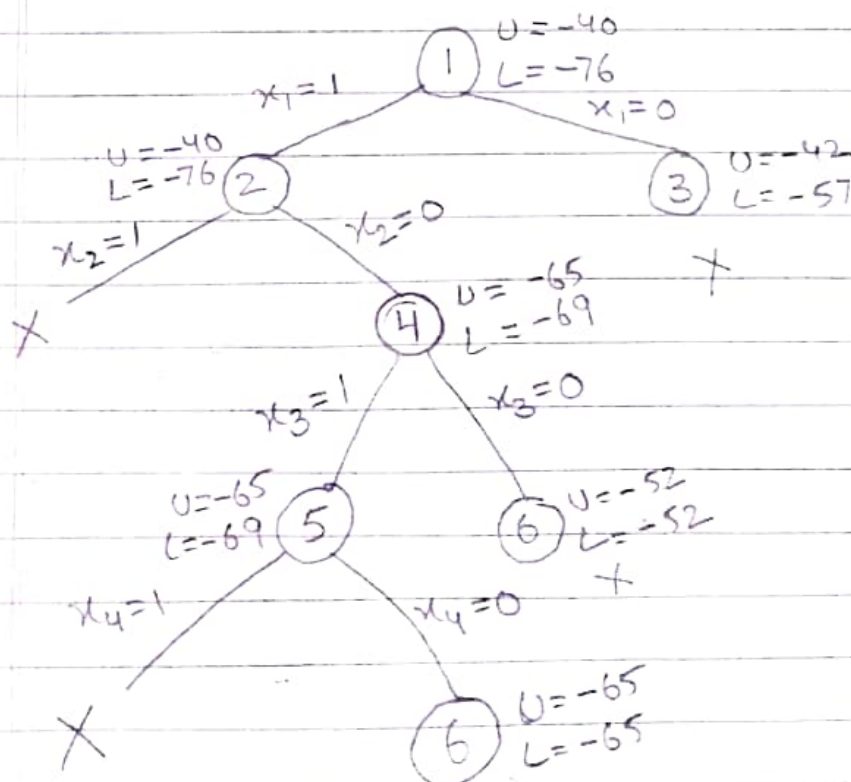 U=-40
1
L=-76
x₁=1
x₁=0
U=-40
L=-76
2
3
U=-42
L=-57
x₂=1
x₂=0
X
X
4
U=-65
L=-69
x₃=1
x₃=0
U=-65
L=-69
5
6
U=-52
L=-52
X
x₄=1
x₄=0
X
6
U=-65
L=-65